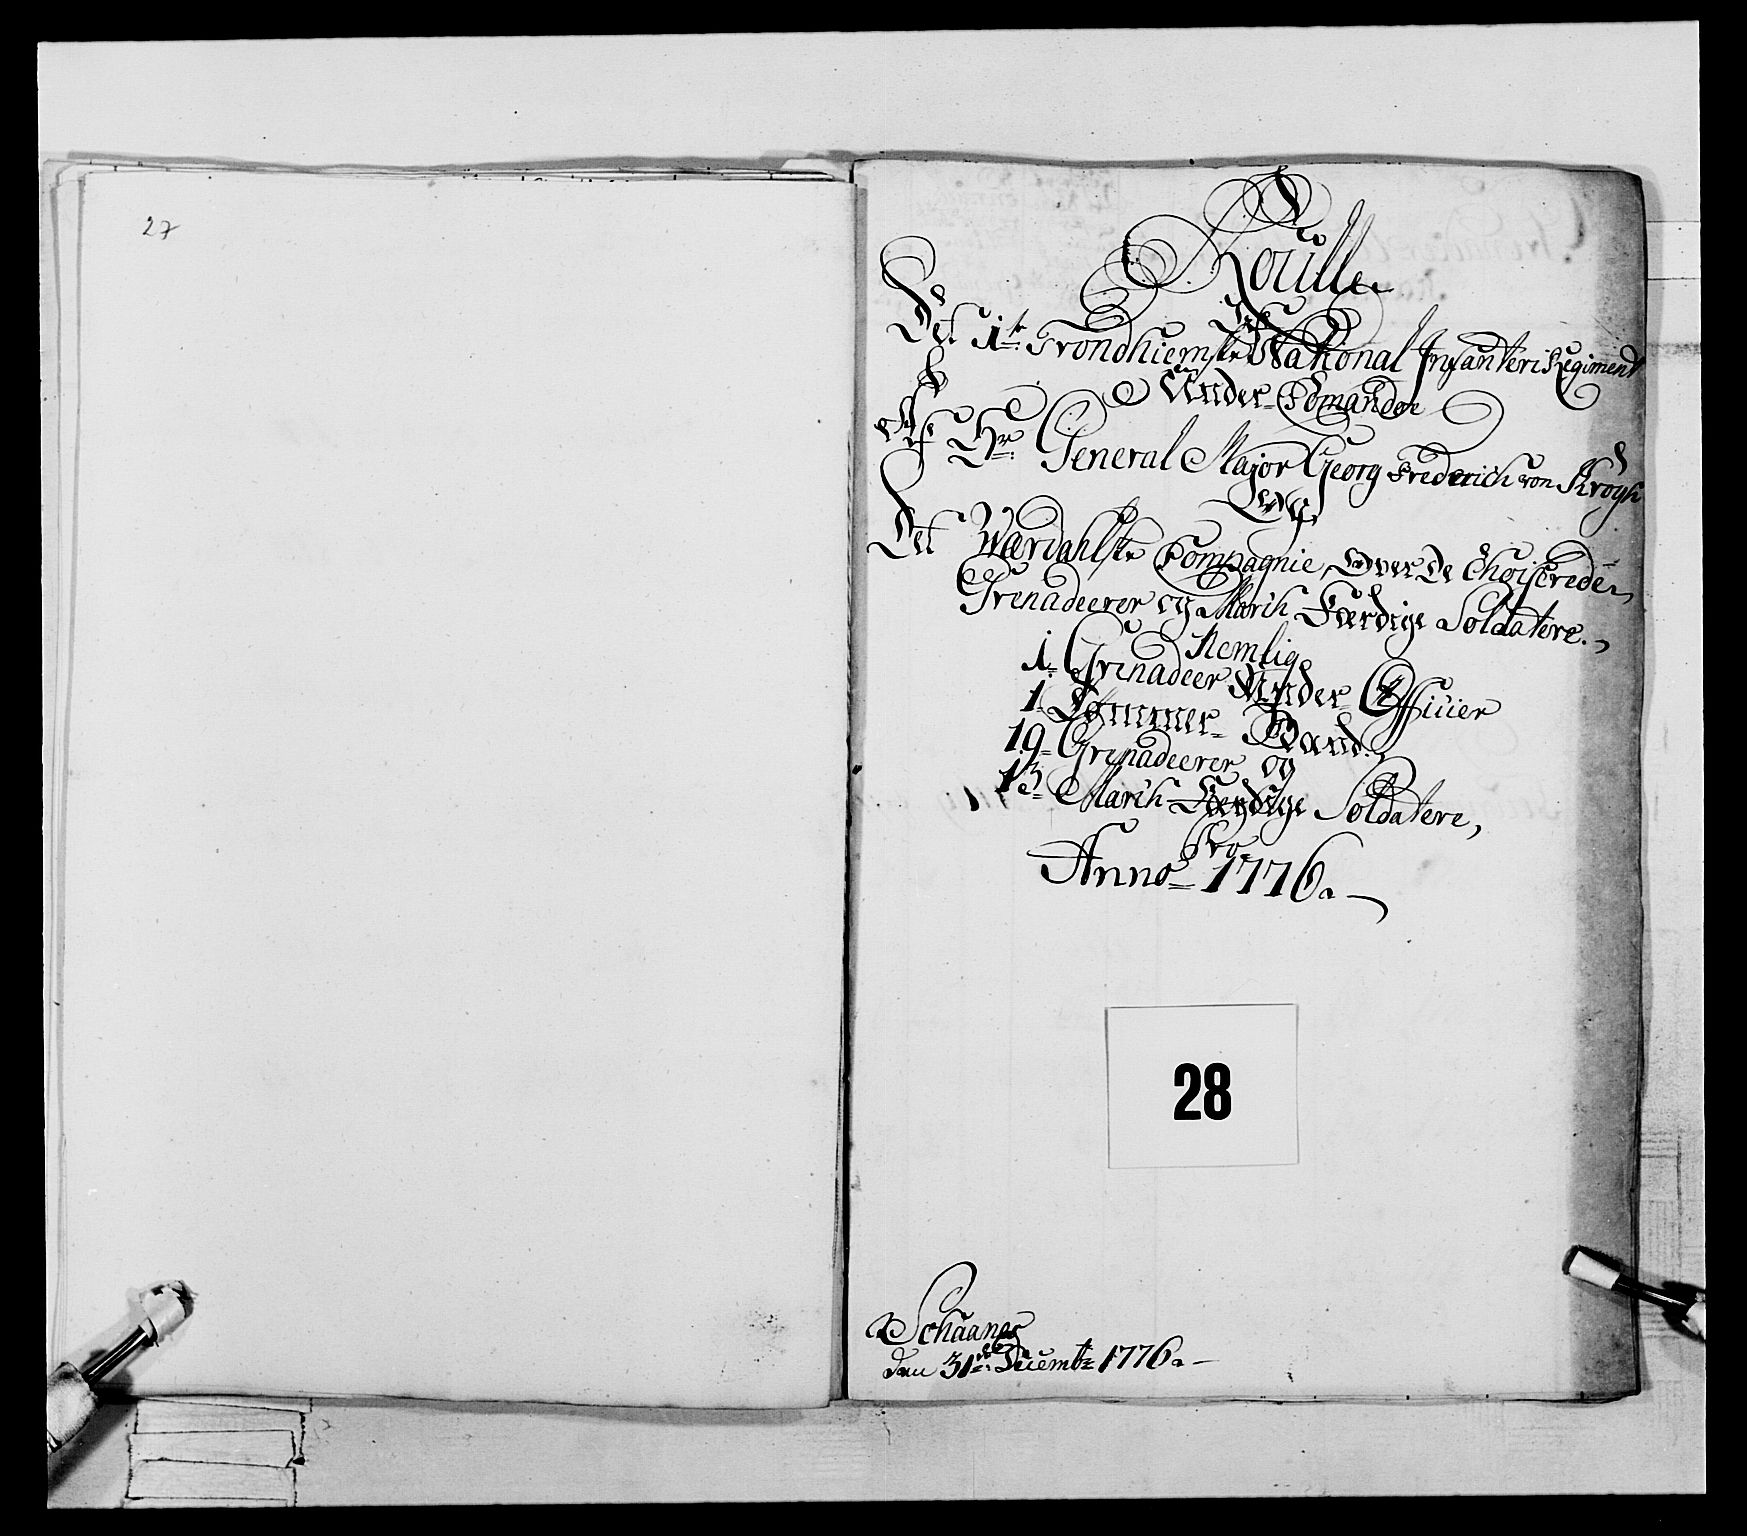 27
Roulle
Ved
Det 1te Trondhiemske National Infanteri Regiment
Under Comando
Af Hr: General Major Georg Frederich von Krogh
Ved
Det Wærdahlske Compagnie, Over De Choiserede
Grenadeerer og Marsh Færdige Soldatere.
Nemlig
1 Grenadeer Under Officier
1 Tømmer Mand
19 Grenadeerer og
13 Marsh Færdige Soldatere,
Pro
Anno 1776.
28
Schaanes
den 31te Decembr 1776.